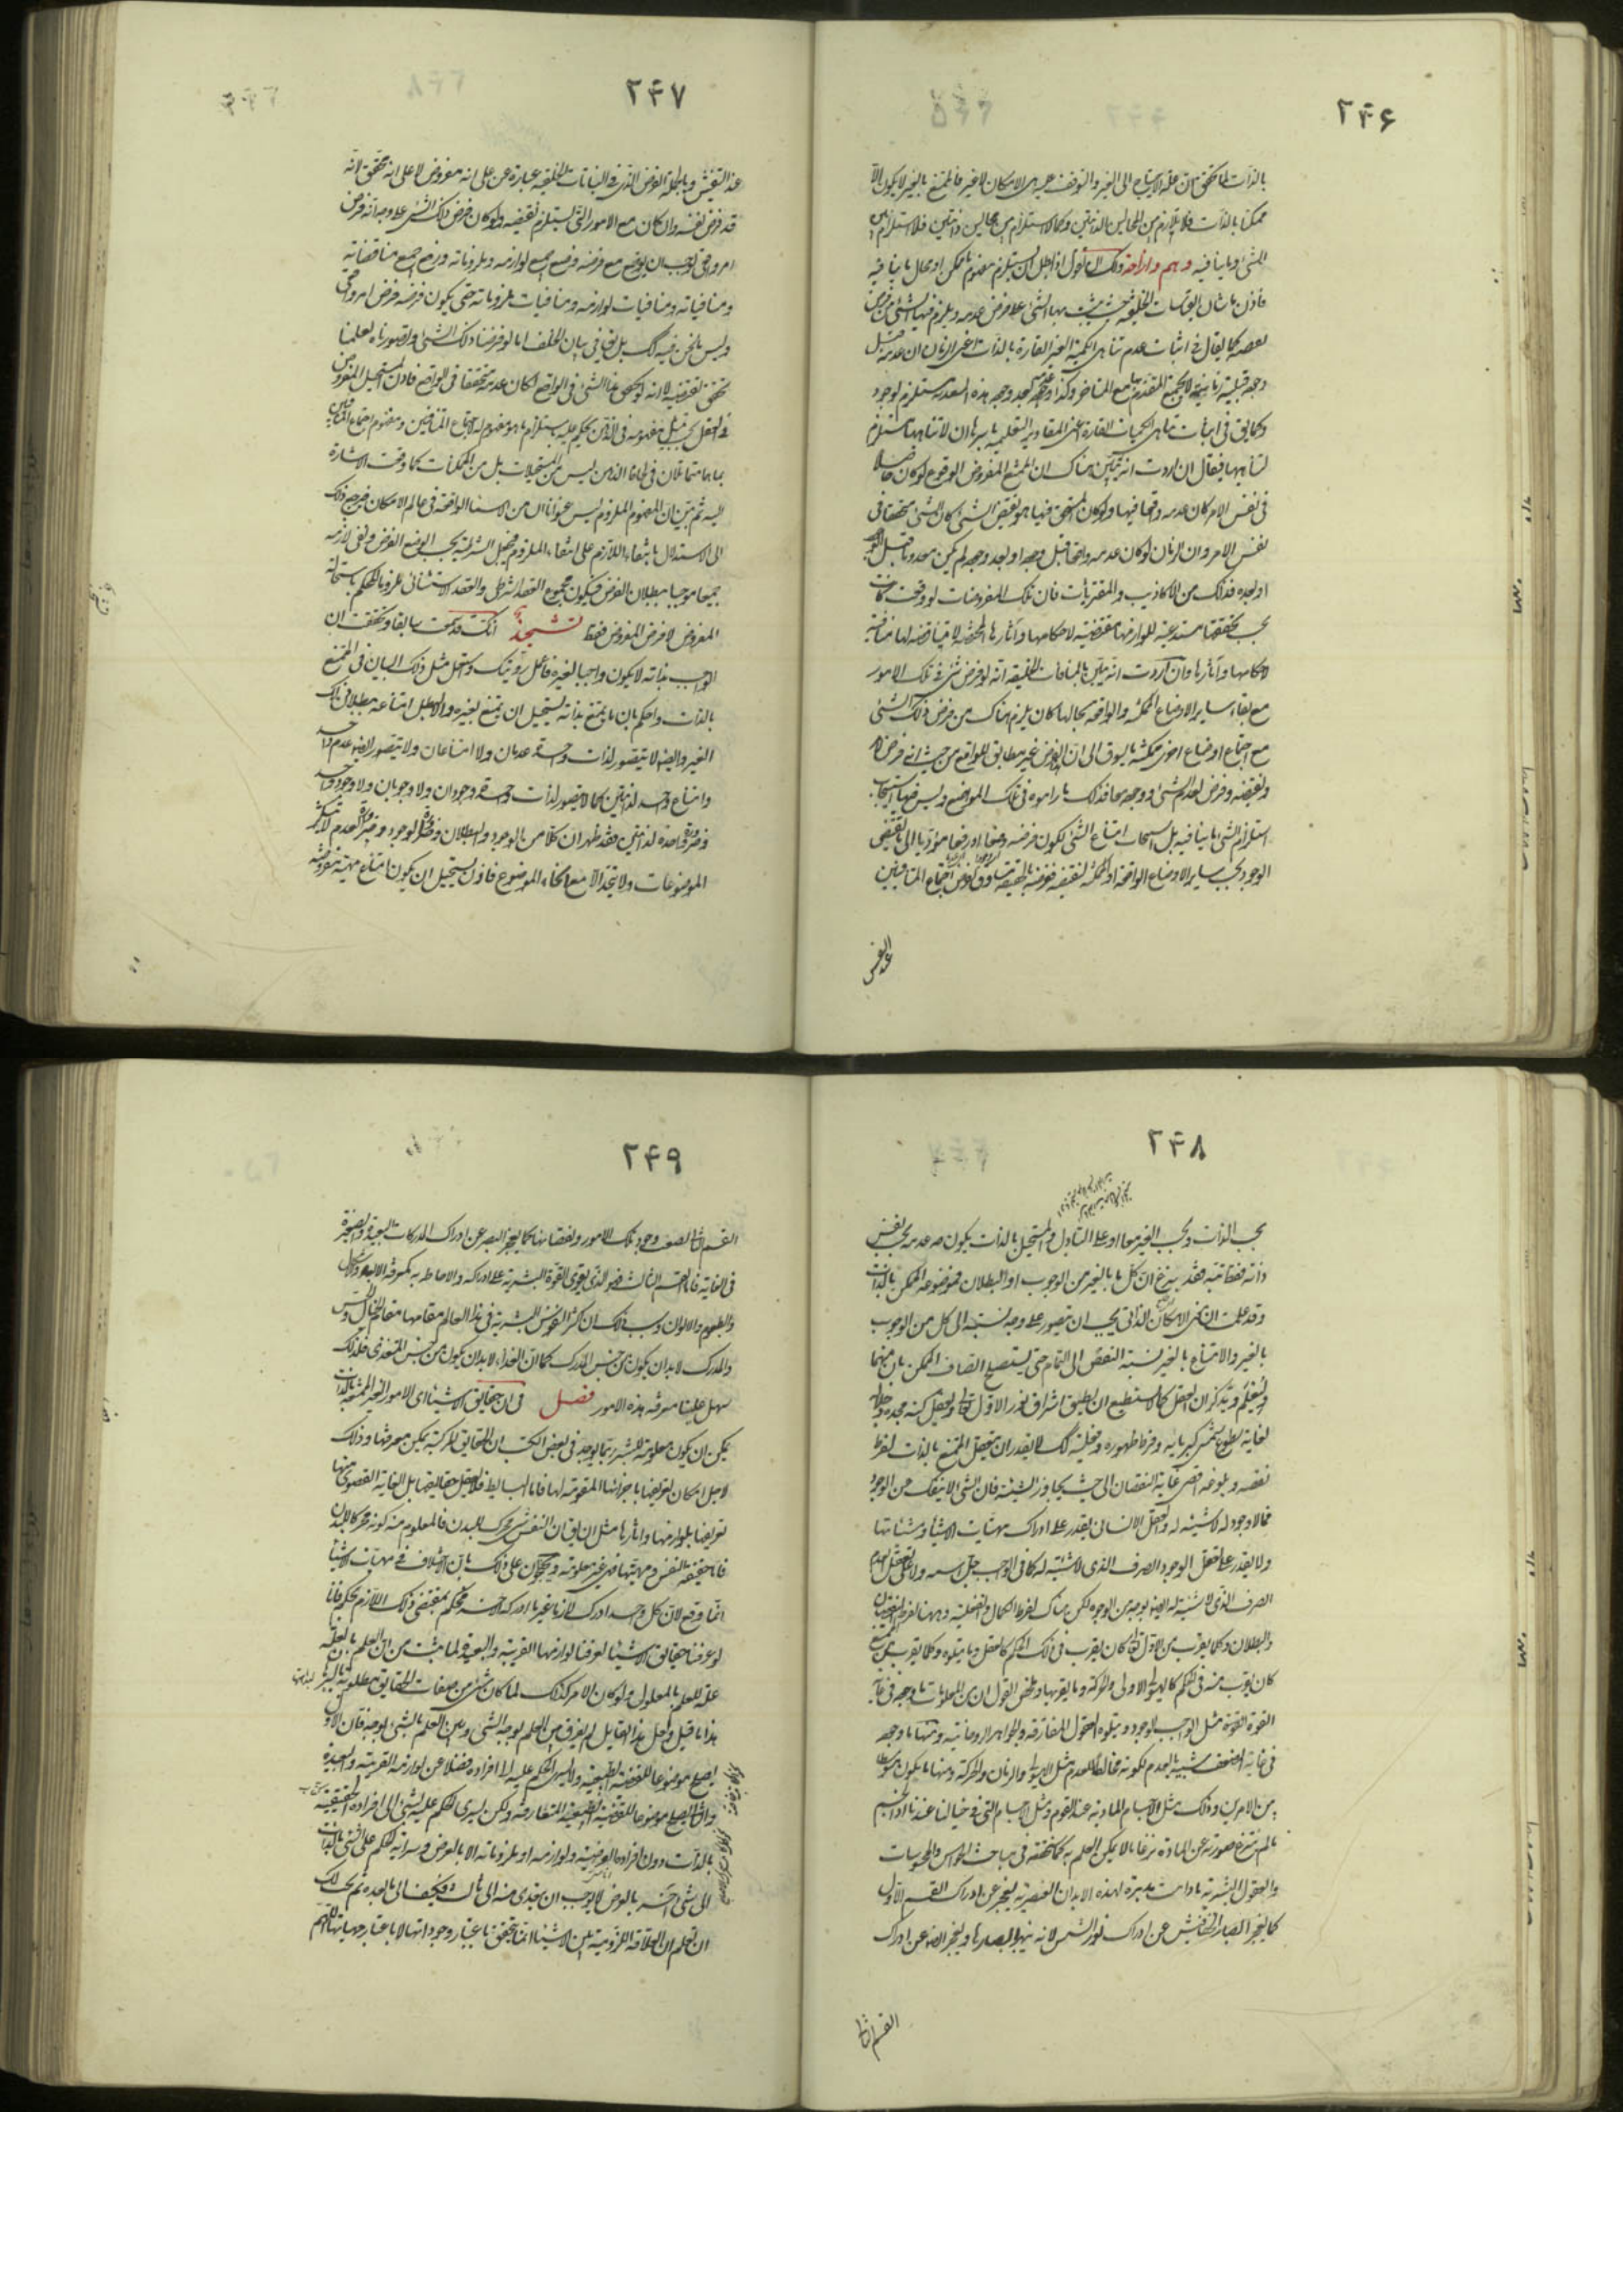 ۲۴۶
بالذات لما تحقق ان علة الاحتياج الى الغير والتوقف عليه هى الامكان لا غير فالممتنع بالغير لا يكون الا
ممكنا بالذات فلا تلازم بين المحالين بالذاتيين وكما لا استلزام بين محالين ذاتيين فلا استلزام بين
الشئ وما ينافيه وهم وازاحة ولك ان تقول اذا بطل ان يستلزم مفهوم ما ممكن او محال ما ينافيه
فاذن ما شان القياسات الخلفية حيث يثبت بها الشئ على فرض عدمه ويلزم فيها الشئ من فرض
نقيضه كما يقال فى اثبات عدم تناهى الكمية الغير القارة بالذات اعنى الزمان ان عدمه قبل
وجوده قبلية زمانية لا يجمع المتقدم بها مع المتاخر وكذا عدمه بعد وجوده هذه البعدية يستلزم لوجود
وكما يق فى اثبات تناهى الكميات القارة اعنى المقادير التعليمية باسرها ان لا تناهيها يستلزم
تناهيها فيقال ان اردت انه تبين هناك ان الممتنع المفروض الوقوع لو كان حاصلا
فى نفس الامر كان عدمه واقعا فيها ولو كان المتحقق فيها هو نقيض الشئ كان الشئ متحققا فى
نفس الامر وان الزمان لو كان عدمه واقعا قبل وجوده او بعد وجوده لم يكن معدوما قبل الوجود
او بعده فذلك من الاكاذيب والمفتريات فان تلك المفروضات لو وقعت كانت
بحسب تحققها مستدعية للوازمها مقتضية لاحكامها واثارها المختصة لا مناقضة لها منافية
لاحكامها واثارها وان اردت انه تبين بالبيانات الخلفية انه لو فرض شئ من تلك الامور
مع بقاء ساير الاوضاع الممكنة والواقعة بحالها كان يلزم هناك من فرض ذلك الشئ
مع اجتماع اوضاع اخرى ممكنة ما يسوق الى ان الفرض غير مطابق للواقع من حيث انه فرض امر
ونقيضه وفرض لعدم شئ او وجوده معا فذلك ما راموه فى تلك المواضع وليس فيها استيجاب
استلزام الشئ ما ينافيه بل استيجاب امتناع الشئ لكون فرضه وضعا او رفعا مؤديا الى ما يقتضى
الوجود بحسب ساير الاوضاع الواقعة او الممكنة نقيضه ففرضه بالحقيقة مساوق لفرض اجتماع المتنافيين
عند التفتيش
۲۴۷
عند التفتيش وبالجملة الفرض الذى فى القياسات الخلفية عبارة عن على انه مفروض لا على انه متحقق لانه
قد فرض نفسه وان كان مع الامور التى تستلزم نقيضه ولو كان فرض ذلك الشئ على وجه انه فرض
امر واقعى لوجب ان يوضع مع فرضه وضع جميع لوازمه وملزوماته ورفع جميع مناقضاته
ومنافياته ومنافيات لوازمه ومنافيات ملزوماته حتى يكون فرضه فرض امر واقعى
وليس ما نحن فيه كك بل يق فى بيان الخلف انا لو فرضنا ذلك الشئ او تصورناه لعلمنا
تحقق نقيضه لانه لو تحقق هذا الشئ فى الواقع لكان عدمه متحققا فى الواقع فاذن المستحيل المفروض
فى العقل بحسب تمثيل مفهومه فى الذهن يحكم عليه باستلزام ما هو مفهوم له لاجتماع المتنافيين ومفهوم اجتماع المتنافيين
بما هما متماثلان فى لحاظ الذهن ليس من المستحيلات بل من الممكنات كما وقعت الاشارة
اليه ثم تبين ان المفهوم الملزوم ليس عنوانا لامر من الاشياء الواقعة فى عالم الامكان فيرجع ذلك
الى الاستدلال بانتفاء اللازم على انتفاء الملزوم فيحصل الشرطية بحسب الوضع الفرض ونفى لازمه
جميعا موجبا ببطلان الفرض فيكون مجموع العقد الشرطى والعقد الاستثنائى ملزوما للحكم باستحالة
المفروض لا فرض المفروض فقط تسجيل انك قد سمعت سابقا وتحققت ان
الواجب بذاته لا يكون واجبا لغيره فاعمل رويتك واستعمل مثل ذلك البيان فى الممتنع
بالذات واحكم بان ما يمتنع بذاته يستحيل ان يمتنع بغيره والا بطل امتناعه ببطلان ذلك
الغير وايضا لا يتصور لذات واحدة عدمان ولا امتناعان ولا يتصور ايضا عدم واحد
وامتناع واحد لذاتين كما لا يتصور لذات واحدة وجودان ولا وجوبان ولا وجود واحد
وضرورة واحدة لذاتين فقد ظهر ان كلا من الوجود والبطلان وضرورة الوجود وضرورة العدم لا يتكثر
الموضوعات ولا يتحد الا مع اتحاد الموضوع فاذن يستحيل ان يكون امتناع مهية مفروضة
۲۴۸
بحسب الذات وبحسب الغير معا او على التبادل والمستحيل بالذات يكون صرف عدمه بحسب نفس
ذاته فقط فقد بزغ ان كل ما بالغير من الوجوب او البطلان فموضوعه الممكن بالذات
وقد علمت ان معنى الامكان الذاتى يجب ان يتصور على وجه نسبته الى كل من الوجوب
بالغير والامتناع بالغير نسبة النقص الى التمام حتى يستصح اتصاف الممكن باى منهما
وليعلم ويتذكر ان العقل كما لا يستطيع ان يطيق اشراق نور الاول تعالى ويعقل كنه مجده وجلاله
لغاية سطوع شمس كبريائه وفرط ظهوره وفعليته كك لا يقدر ان يتعقل الممتنع بالذات لفرط
نقصه وبلوغه اقصى غاية النقصان الى حيث يجاوز الشيئية فان الشئ لا ينفك عن الوجود
فما لا وجود له لا شيئية له والعقل الانسانى يقدر على ادراك مهيات الاشياء وشيئاتها
ولا يقدر على تعقل الوجود الصرف الذى لا شيئية له كما فى الواجب جل اسمه ولا على تعقل العدم
الصرف الذى لا شيئية له ايضا بوجه من الوجوه لكن هناك لفرط الكمال والفعلية وههنا لفرط النقصان
والبطلان وكلما يقرب من الاول تعالى كان يقرب فى ذلك الحكم كالعقل وما يتلوه وكلما يقرب من الممتنع
كان يقرب منه فى الحكم كالهيولى الاولى والحركة وما يقربهما وملخص القول ان من المعلومات ما وجوده فى غاية
القوة الفعلية مثل الواجب الوجود ويتلوه العقول المفارقة والجواهر الروحانية ومنها ما وجوده
فى غاية الضعف شبيه بالعدم لكونه مخالطا للعدم مثل الهيولى والزمان والحركة ومنها ما يكون متوسطا
بين الامرين وذلك مثل الاجسام المادية عند القوم ومثل الاجسام التى فى خيالنا عندنا اذ الجسم
ما لم ينتزع صورته عن المادة نزعا ما لا يمكن العلم به كما تحققته فى مباحث الحواس والمحسوسات
والعقول البشرية ما دامت مدبرة لهذه الابدان العنصرية يعجز عن ادراك القسم الاول
كما يعجز ابصار الخفافيش عن ادراك نور الشمس لانه يبهر ابصارها ويعجز ايضا عن ادراك
القسم الثانى
۲۴۹
القسم الثانى لضعف وجود تلك الامور ونقصاناتها كما يعجز البصر عن ادراك المدركات البعيدة والصغيرة
فى الغاية فاما القسم الثالث فهو الذى يقوى القوة البشرية على ادراكه والاحاطة به كمعرفة الابعاد والاشكال
والطعوم والالوان وسبب ذلك ان اكثر النفوس البشرية فى هذا العالم مقامها مقام الخيال والحس
والمدرك لا بد ان يكون من جنس المدرك كما ان الغذاء لا بد ان يكون من جنس المتغذى فلذلك
سهل علينا معرفة هذه الامور فصل فى ان حقايق الاشياء اى الامور الغير الممتنعة بالذات
يمكن ان يكون معلومة للبشر ربما يوجد فى بعض الكتب ان الحقايق المركبة يمكن معرفتها وذلك
لاجل امكان تعريفها باجزائها المقومة لها فاما البسايط فلا يعقل حقايقها بل الغاية القصوى منها
تعريفها بلوازمها واثارها مثل ان يق ان النفس شئ محرك للبدن فالمعلوم منه كونه محركا للبدن
فاما حقيقة النفس ومهيتها فهى غير معلومة ويحتجون على ذلك بان الاختلاف فى مهيات الاشياء
انما وقع لان كل واحد ادرك لازما غير ما ادركه الاخر فحكم بمقتضى ذلك اللازم فحكم فاما
لو عرفنا حقايق الاشياء لعرفنا لوازمها القريبة والبعيدة لما ثبت من ان العلم بالعلة
علة للعلم بالمعلول ولو كان الامر كذلك لما كان شئ من صفات الحقايق مطلوبة بالبراهين
هذا ما قيل ولعل هذا القايل لم يفرق بين العلم بوجه الشئ وبين العلم بالشئ بوجه فان الاول
يصلح موضوعا للقضية الطبيعية ولا يسرى الحكم عليه الى افراده فضلا عن لوازمه القريبة والبعيدة
والثانى يصلح موضوعا للقضية المتعارفة ولكن يسرى الحكم عليه الشئ الى افراده الحقيقية
بالذات دون افراده العرضية ولوازمه او ملزوماته الا بالعرض وسراية الحكم على الشئ بالذات
الى شئ اخر بالعرض لا يوجب ان يتعدى منه الى ثالث فكيف الى ما بعده ثم يجب لك
ان تعلم ان العلاقة اللزومية بين الاشياء انما يتحقق باعتبار وجوداتها لا باعتبار مهياتها اللهم